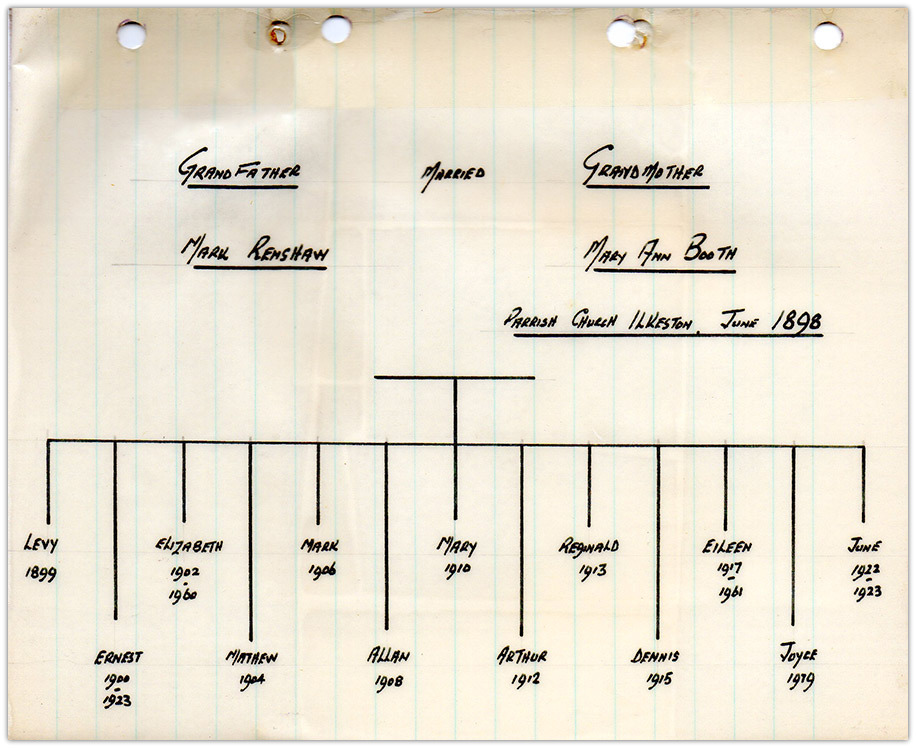 GRANDFATHER MARRIED GRANDMOTHER
MARK RENSHAW MARY ANN BOOTH
PARRISH CHURCH ILKESTON. JUNE 1898
LEVY ELIZABETH MARK MARY REGINALD EILEEN JUNE
1899 1902 1906 1910 1913 1917 1922
- - -
1960 1961 1923
ERNEST MATHEW ALLAN ARTHUR DENNIS JOYCE
1900 1904 1908 1912 1915 1979
-
1923